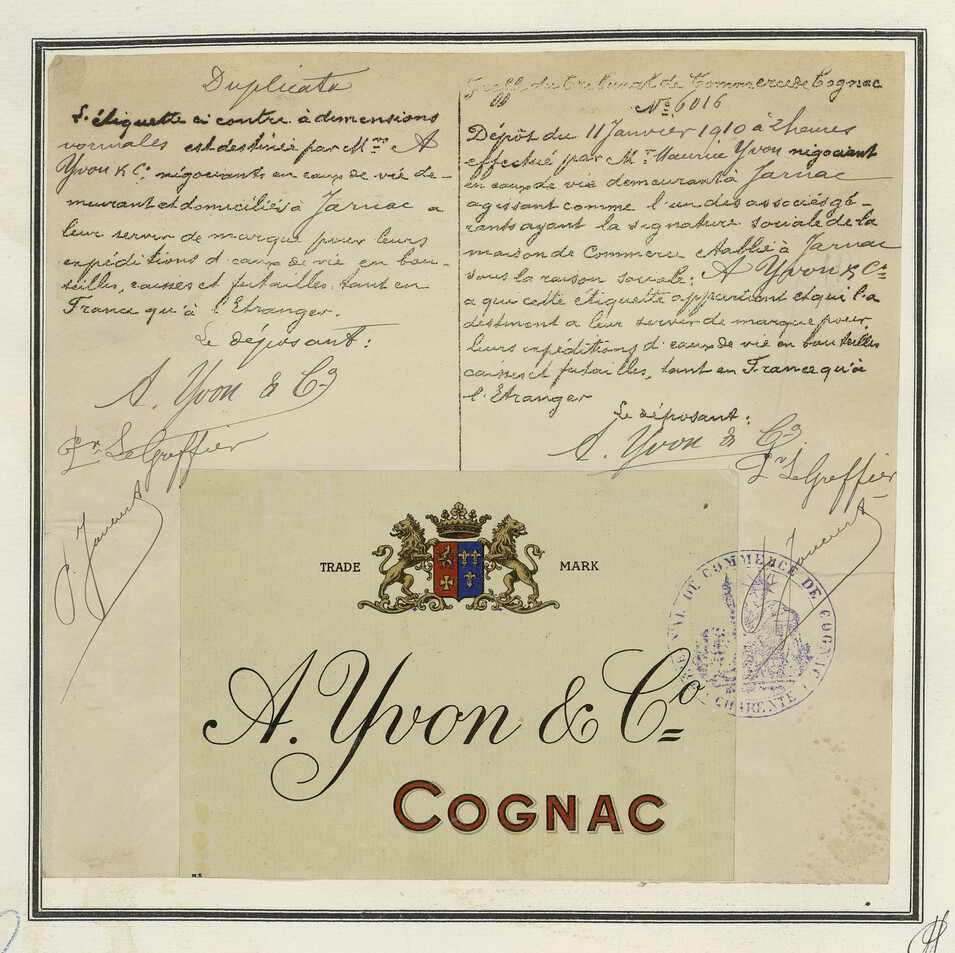 Duplicata
L'étiquette ci contre à dimensions
normales est destinée par Mrs A
Yvon & Co négociants en eaux de vie de-
meurant et domiciliés à Jarnac a
leur servir de marque pour leurs
expéditions d'eaux de vie en bou-
teilles, caisses et futailles, tant en
France qu'à l'Etranger.
Le déposant:
A. Yvon & Co
Pr Le Greffier
Greffe du Tribunal de Commerce de Cognac
No 6016
Dépôt du 11 Janvier 1910 à 2 heures
effectué par Mr Maurice Yvon négociant
en eaux de vie demeurant à Jarnac
agissant comme l'un des associés gé-
rants ayant la signature sociale de la
maison de Commerce établie à Jarnac
sous la raison sociale: A Yvon & Co
a qui cette étiquette appartient et qui l'a
destinent a leur servir de marque pour
leurs expéditions d'eaux de vie en bouteilles
caisses et futailles, tant en France qu'à
l'Etranger
Le déposant:
A. Yvon & Co.
Pr Le Greffier
TRADE MARK
A. Yvon & Co
COGNAC
TRIBUNAL DE COMMERCE DE COGNAC
CHARENTE